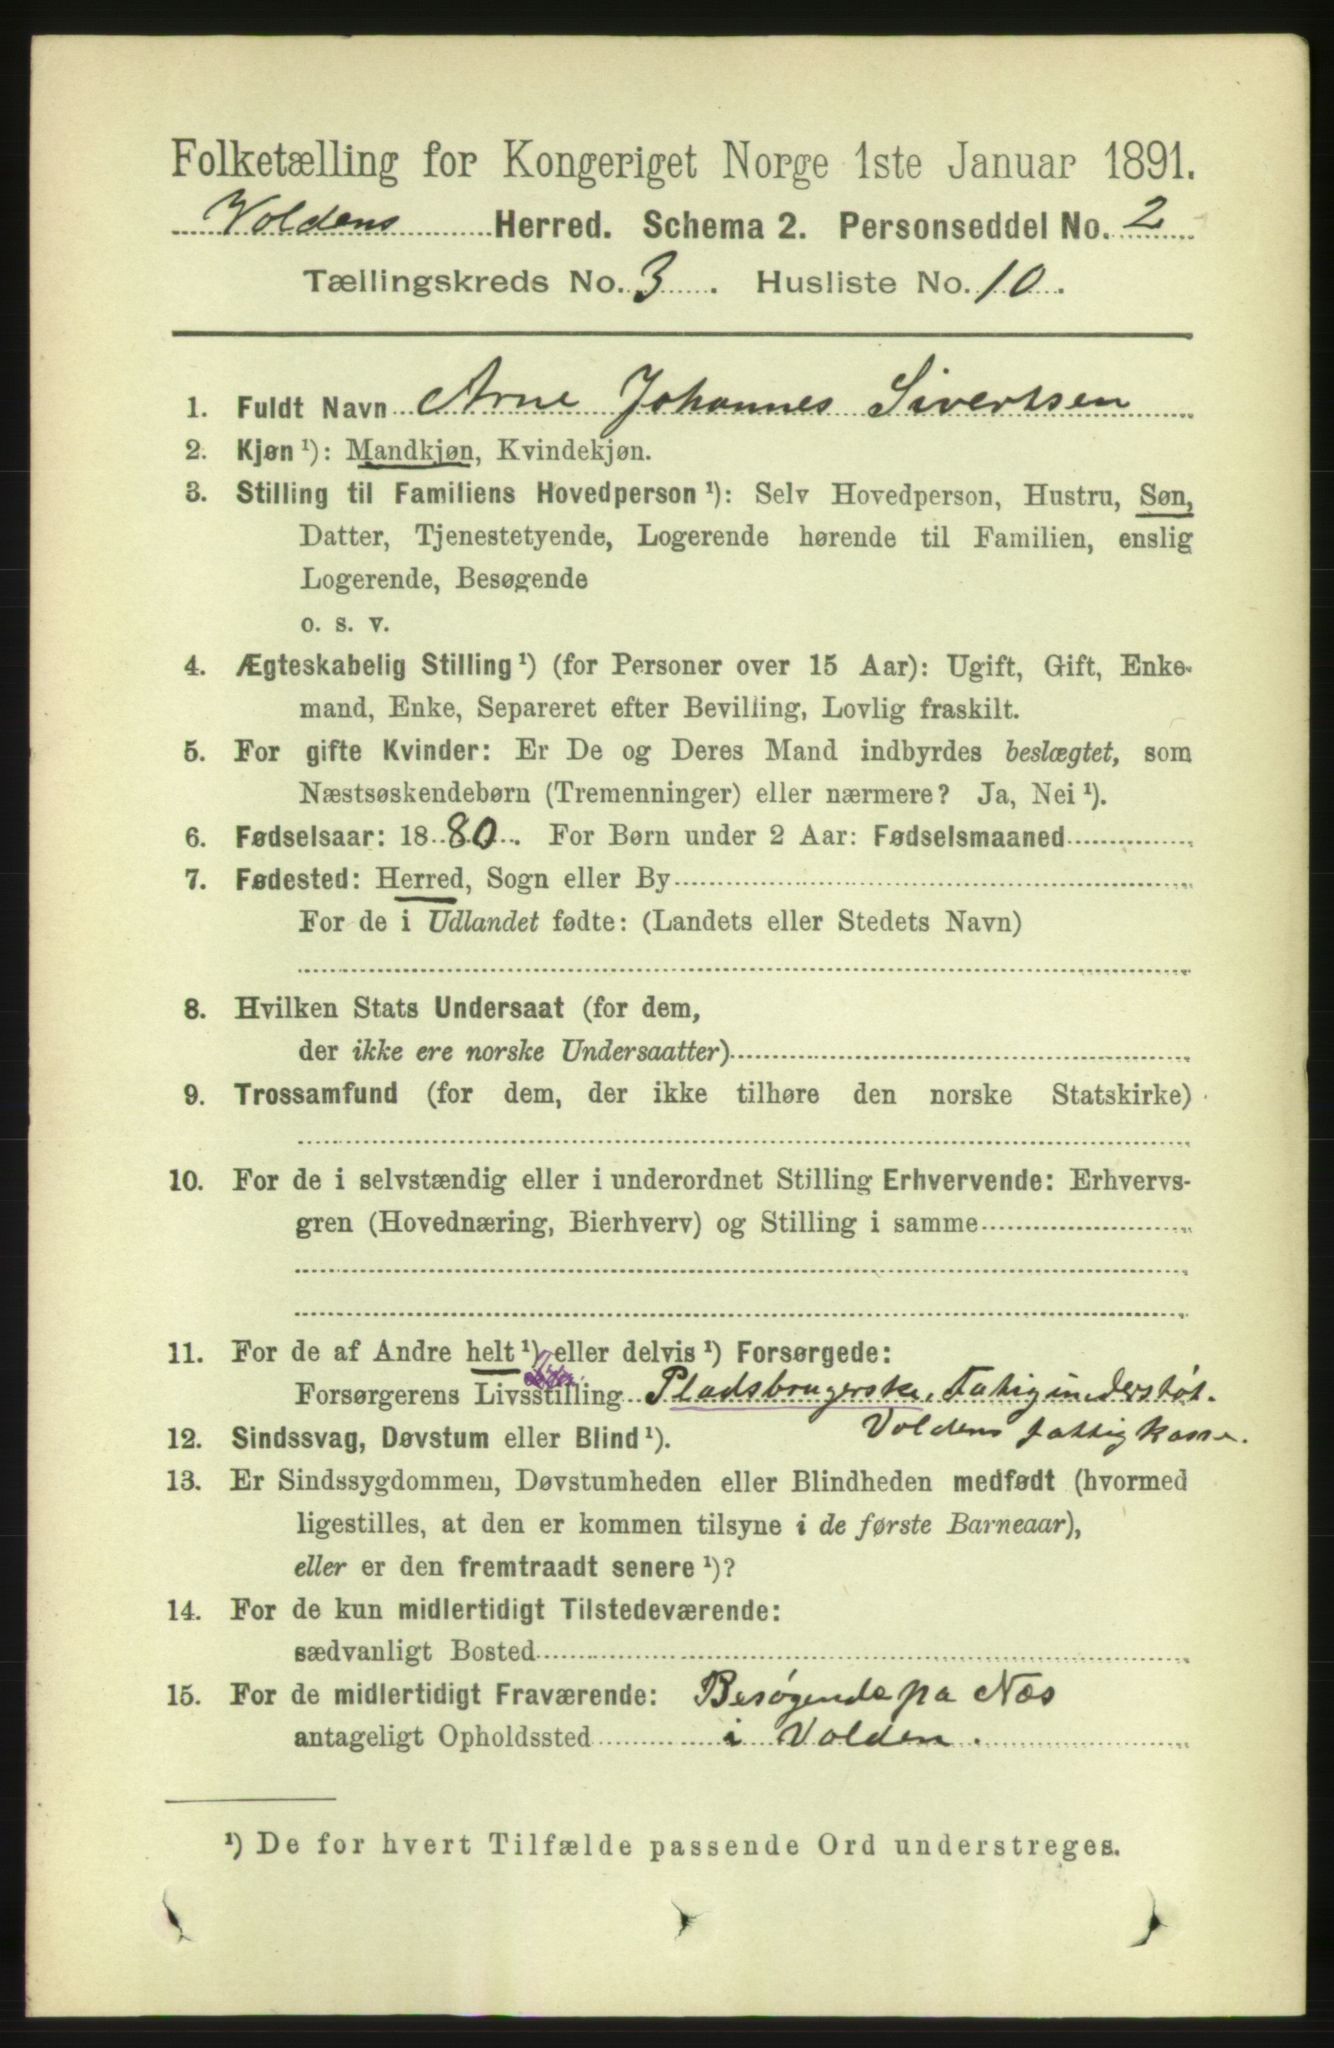 Folketælling for Kongeriget Norge 1ste Januar 1891.
Voldens Herred. Schema 2. Personseddel No. 2
Tællingskreds No. 3. Husliste No. 10.
1. Fuldt Navn Arne Johannes Sivertsen
2. Kjøn ¹): Mandkjøn, Kvindekjøn.
3. Stilling til Familiens Hovedperson ¹): Selv Hovedperson, Hustru, Søn,
Datter, Tjenestetyende, Logerende hørende til Familien, enslig
Logerende, Besøgende
o. s. v.
4. Ægteskabelig Stilling ¹) (for Personer over 15 Aar): Ugift, Gift, Enke-
mand, Enke, Separeret efter Bevilling, Lovlig fraskilt.
5. For gifte Kvinder: Er De og Deres Mand indbyrdes beslægtet, som
Næstsøskendebørn (Tremenninger) eller nærmere? Ja, Nei ¹).
6. Fødselsaar: 1880. For Børn under 2 Aar: Fødselsmaaned
7. Fødested: Herred, Sogn eller By
For de i Udlandet fødte: (Landets eller Stedets Navn)
8. Hvilken Stats Undersaat (for dem,
der ikke ere norske Undersaatter)
9. Trossamfund (for dem, der ikke tilhøre den norske Statskirke)
10. For de i selvstændig eller i underordnet Stilling Erhvervende: Erhvervs-
gren (Hovednæring, Bierhverv) og Stilling i samme
11. For de af Andre helt ¹) eller delvis ¹) Forsørgede:
Forsørgerens Livsstilling Pladsbrugerske, Fatigunderstøt.
Voldens fattigkasse.
12. Sindssvag, Døvstum eller Blind ¹).
13. Er Sindssygdommen, Døvstumheden eller Blindheden medfødt (hvormed
ligestilles, at den er kommen tilsyne i de første Barneaar),
eller er den fremtraadt senere ¹)?
14. For de kun midlertidigt Tilstedeværende:
sædvanligt Bosted
15. For de midlertidigt Fraværende: Besøgende pa Næs
antageligt Opholdssted i Volden.
¹) De for hvert Tilfælde passende Ord understreges.